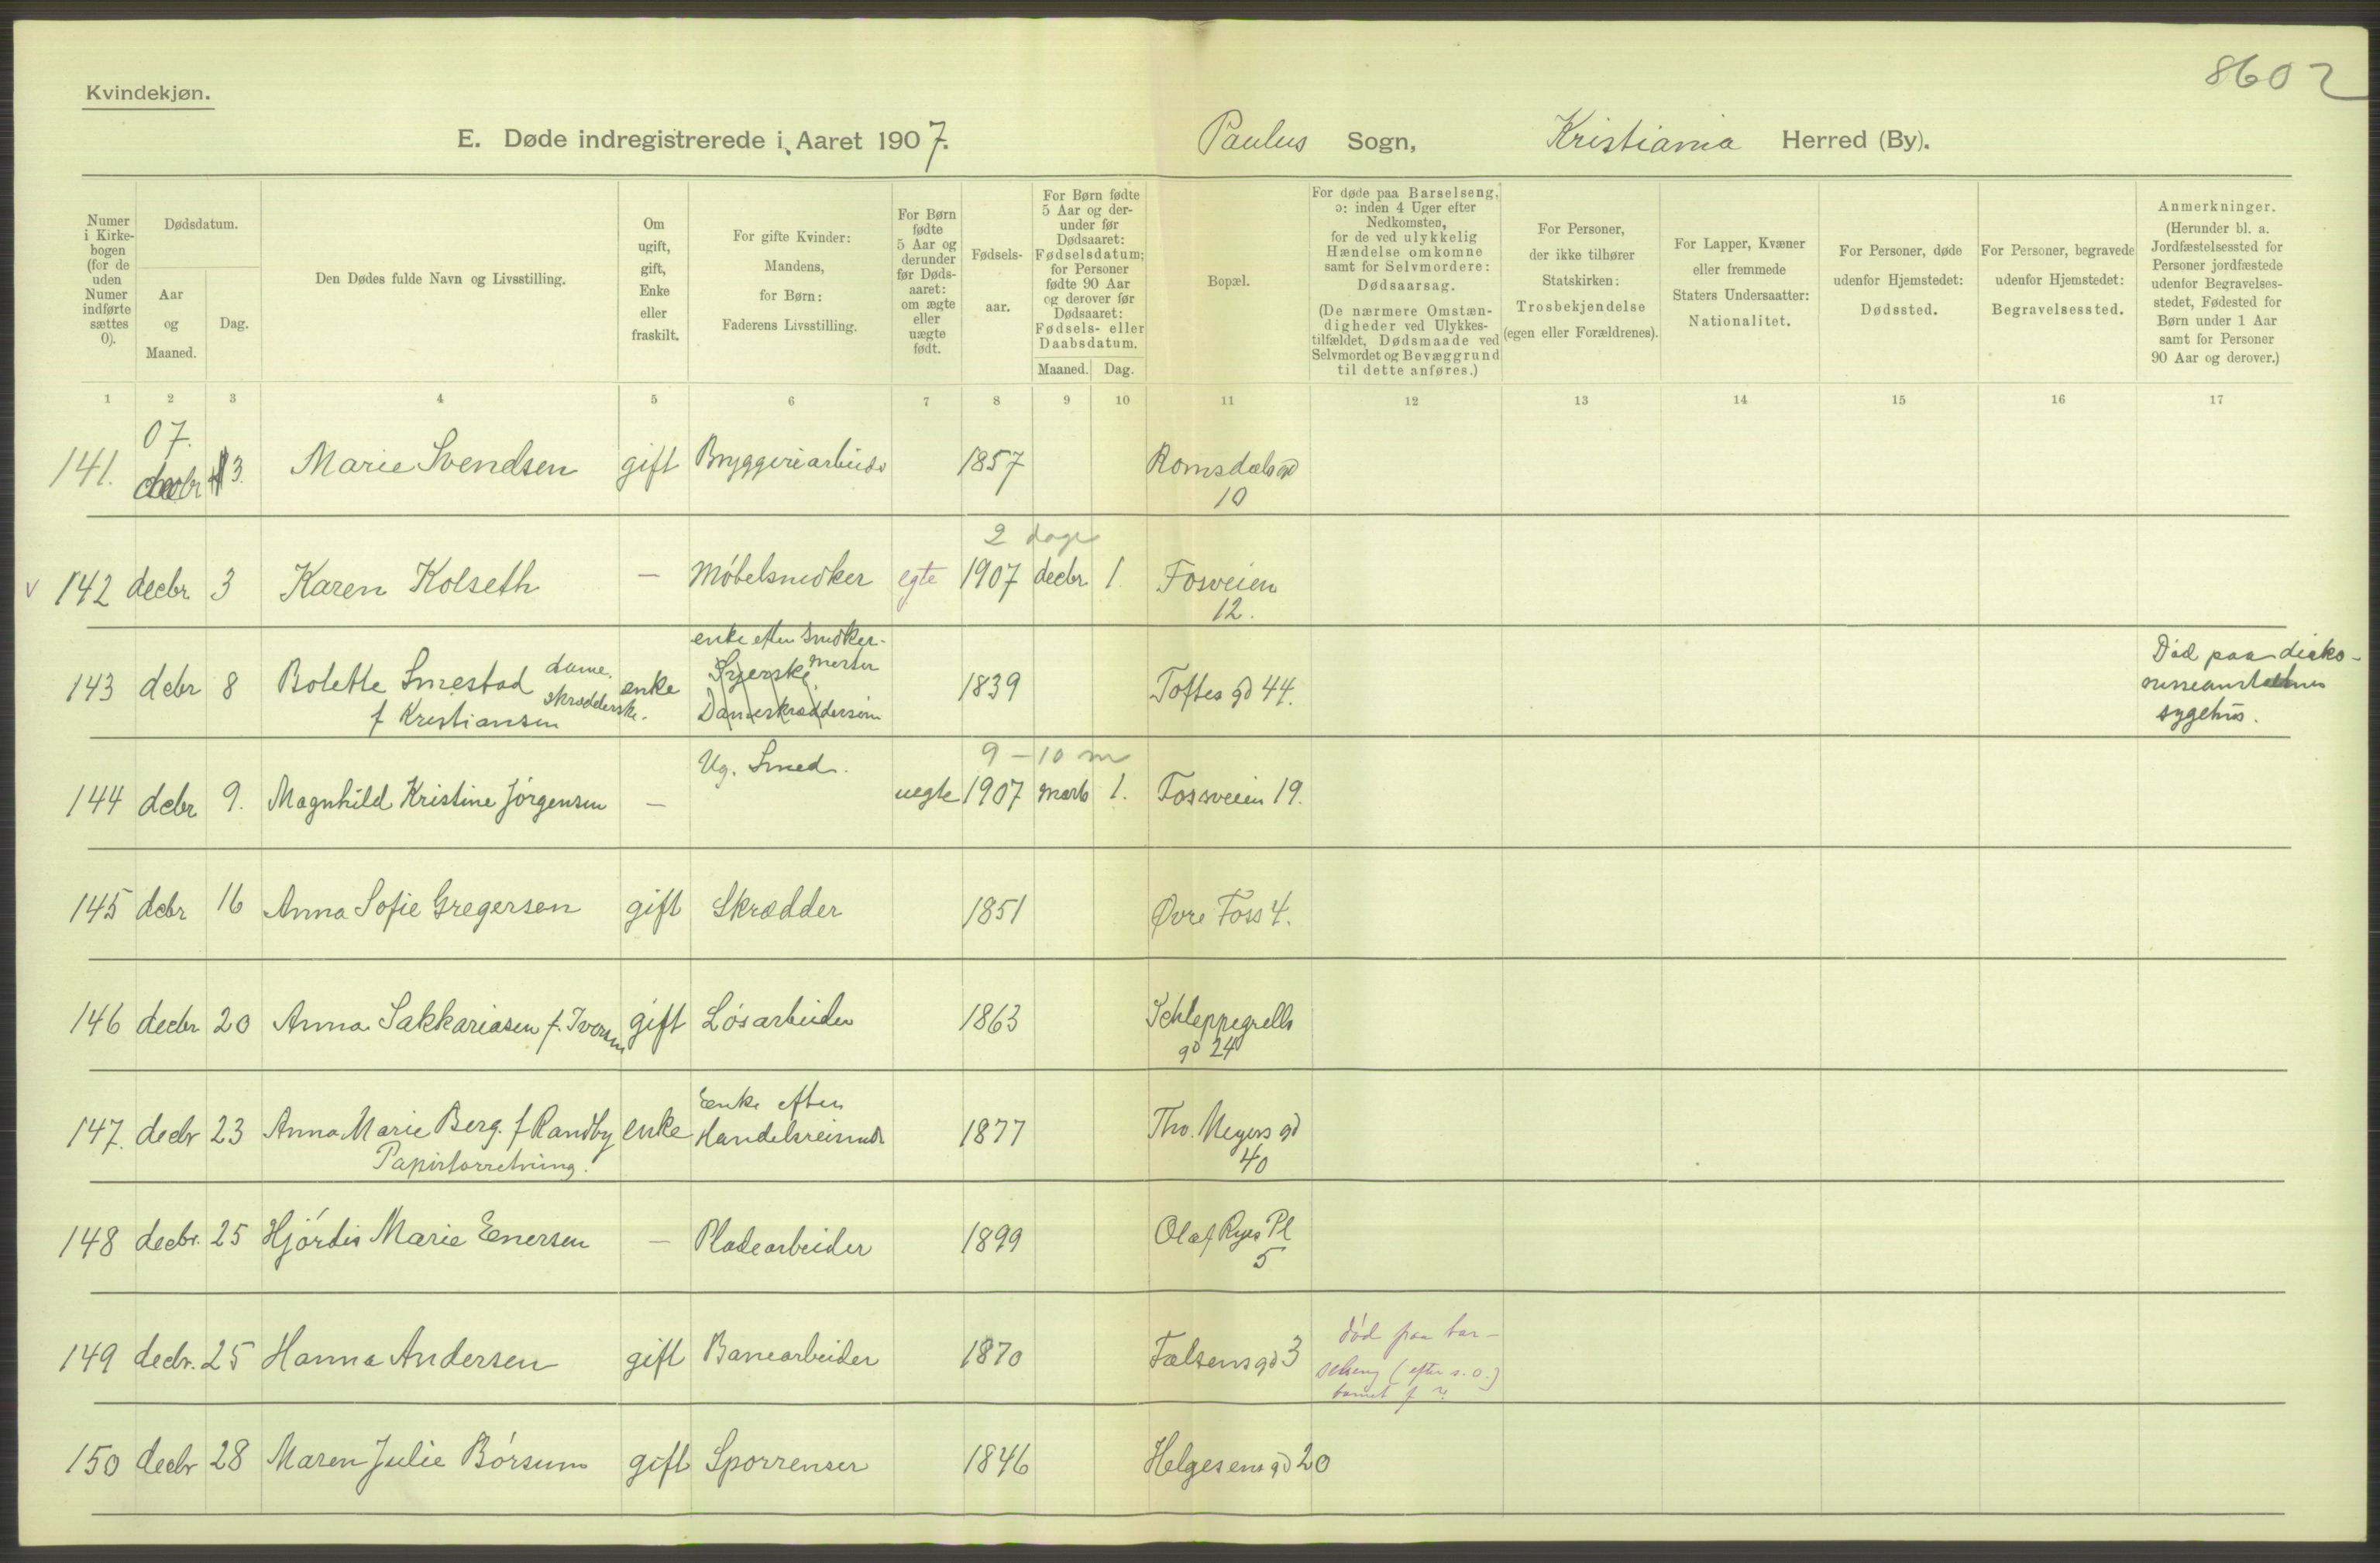 8602
Kvindekjøn.
E. Døde indregistrerede i Aaret 1907. Paulus Sogn, Kristiania Herred (By).
Numer i Kirkebogen (for de uden Numer indførte sættes 0).
Dødsdatum.
Aar og Maaned.
Dag.
Den Dødes fulde Navn og Livsstilling.
Om ugift, gift, Enke eller fraskilt.
For gifte Kvinder: Mandens, for Børn: Faderens Livsstilling.
For Børn fødte 5 Aar og derunder før Dødsaaret: om ægte eller uægte født.
Fødselsaar.
For Børn fødte 5 Aar og derunder før Dødsaaret: Fødselsdatum; for Personer fødte 90 Aar og derover før Dødsaaret: Fødsels- eller Daabsdatum.
Maaned. Dag.
Bopæl.
For døde paa Barselseng, ɔ: inden 4 Uger efter Nedkomsten, for de ved ulykkelig Hændelse omkomne samt for Selvmordere: Dødsaarsag.
(De nærmere Omstændigheder ved Ulykkestilfældet, Dødsmaade ved Selvmordet og Bevæggrund til dette anføres.)
For Personer, der ikke tilhører Statskirken: Trosbekjendelse (egen eller Forældrenes).
For Lapper, Kvæner eller fremmede Staters Undersaatter: Nationalitet.
For Personer, døde udenfor Hjemstedet: Dødssted.
For Personer, begravede udenfor Hjemstedet: Begravelsessted.
Anmerkninger.
(Herunder bl. a. Jordfæstelsessted for Personer jordfæstede udenfor Begravelsesstedet, Fødested for Børn under 1 Aar samt for Personer 90 Aar og derover.)
1 2 3 4 5 6 7 8 9 10 11 12 13 14 15 16 17
07.
141. decbr 3. Marie Svendsen gift Bryggeriarbeider 1857 Romsdalsgd
10
2 dage
v 142 decbr 3 Karen Kolseth — Møbelsnedker egte 1907 decbr 1. Fosveien
12.
enke efter snedker-
mester
143 debr 8 Bolette Smestad dame skrædderske. enke Syerske Dameskræddersøm 1839 Toftes gd 44. Død paa diako-
f Kristiansen nisseanstaltens
sygehus.
Ug. Smed. 9 – 10 m
144 debr 9. Magnhild Kristine Jørgensen — uegte 1907 marts 1. Fossveien 19.
145 debr 16 Anna Sofie Gregersen gift Skrædder 1851 Øvre Foss 4.
146 decbr 20 Anna Sakkariasen f. Iversen gift Løsarbeider 1863 Schleppegrells
gd 24
Enke efter
147. decbr 23 Anna Marie Berg. f Randby enke Handelsreisende 1877 Thv. Meyers gd
Papirforretning. 40
148 decbr. 25 Hjørdis Marie Enersen — Pladearbeider 1899 Olaf Ryes Pl
5
149 decbr. 25 Hanna Andersen gift Banearbeider 1870 Falsensgd 3 død paa bar-
selseng (efter s. o.)
barnet f ?
150 decbr 28 Maren Julie Børsum gift Sporrenser 1846 Helgesens gd 20